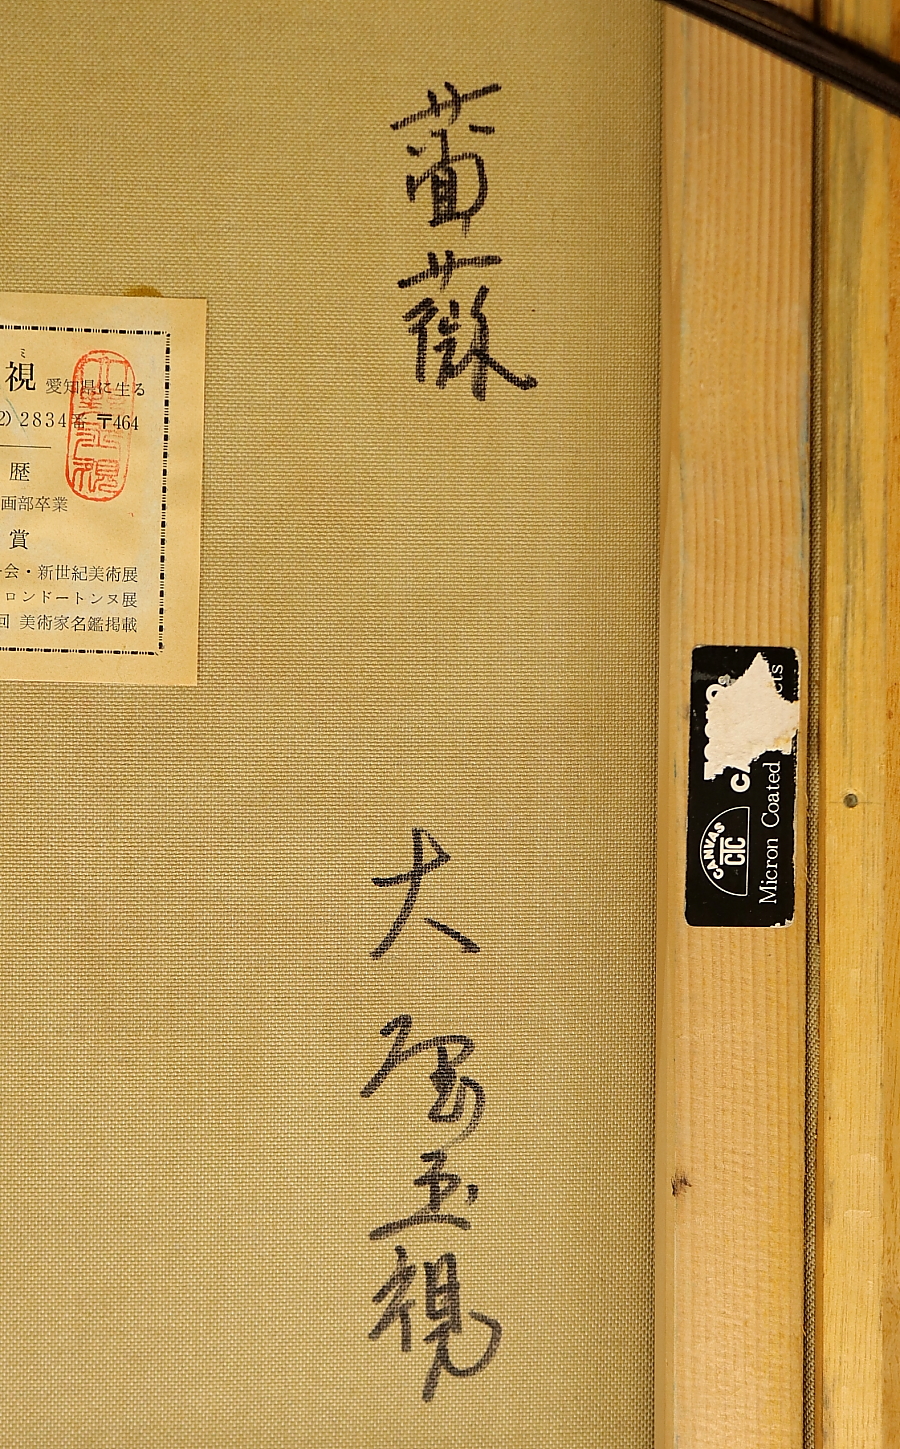 薔薇
大
玉視
ミ
視 愛知県に生る
2) 2834番 〒464
歴
画部卒業
賞
会・新世紀美術展
ロンドートンヌ展
回 美術家名鑑掲載
CANVAS
CTC
Micron Coated